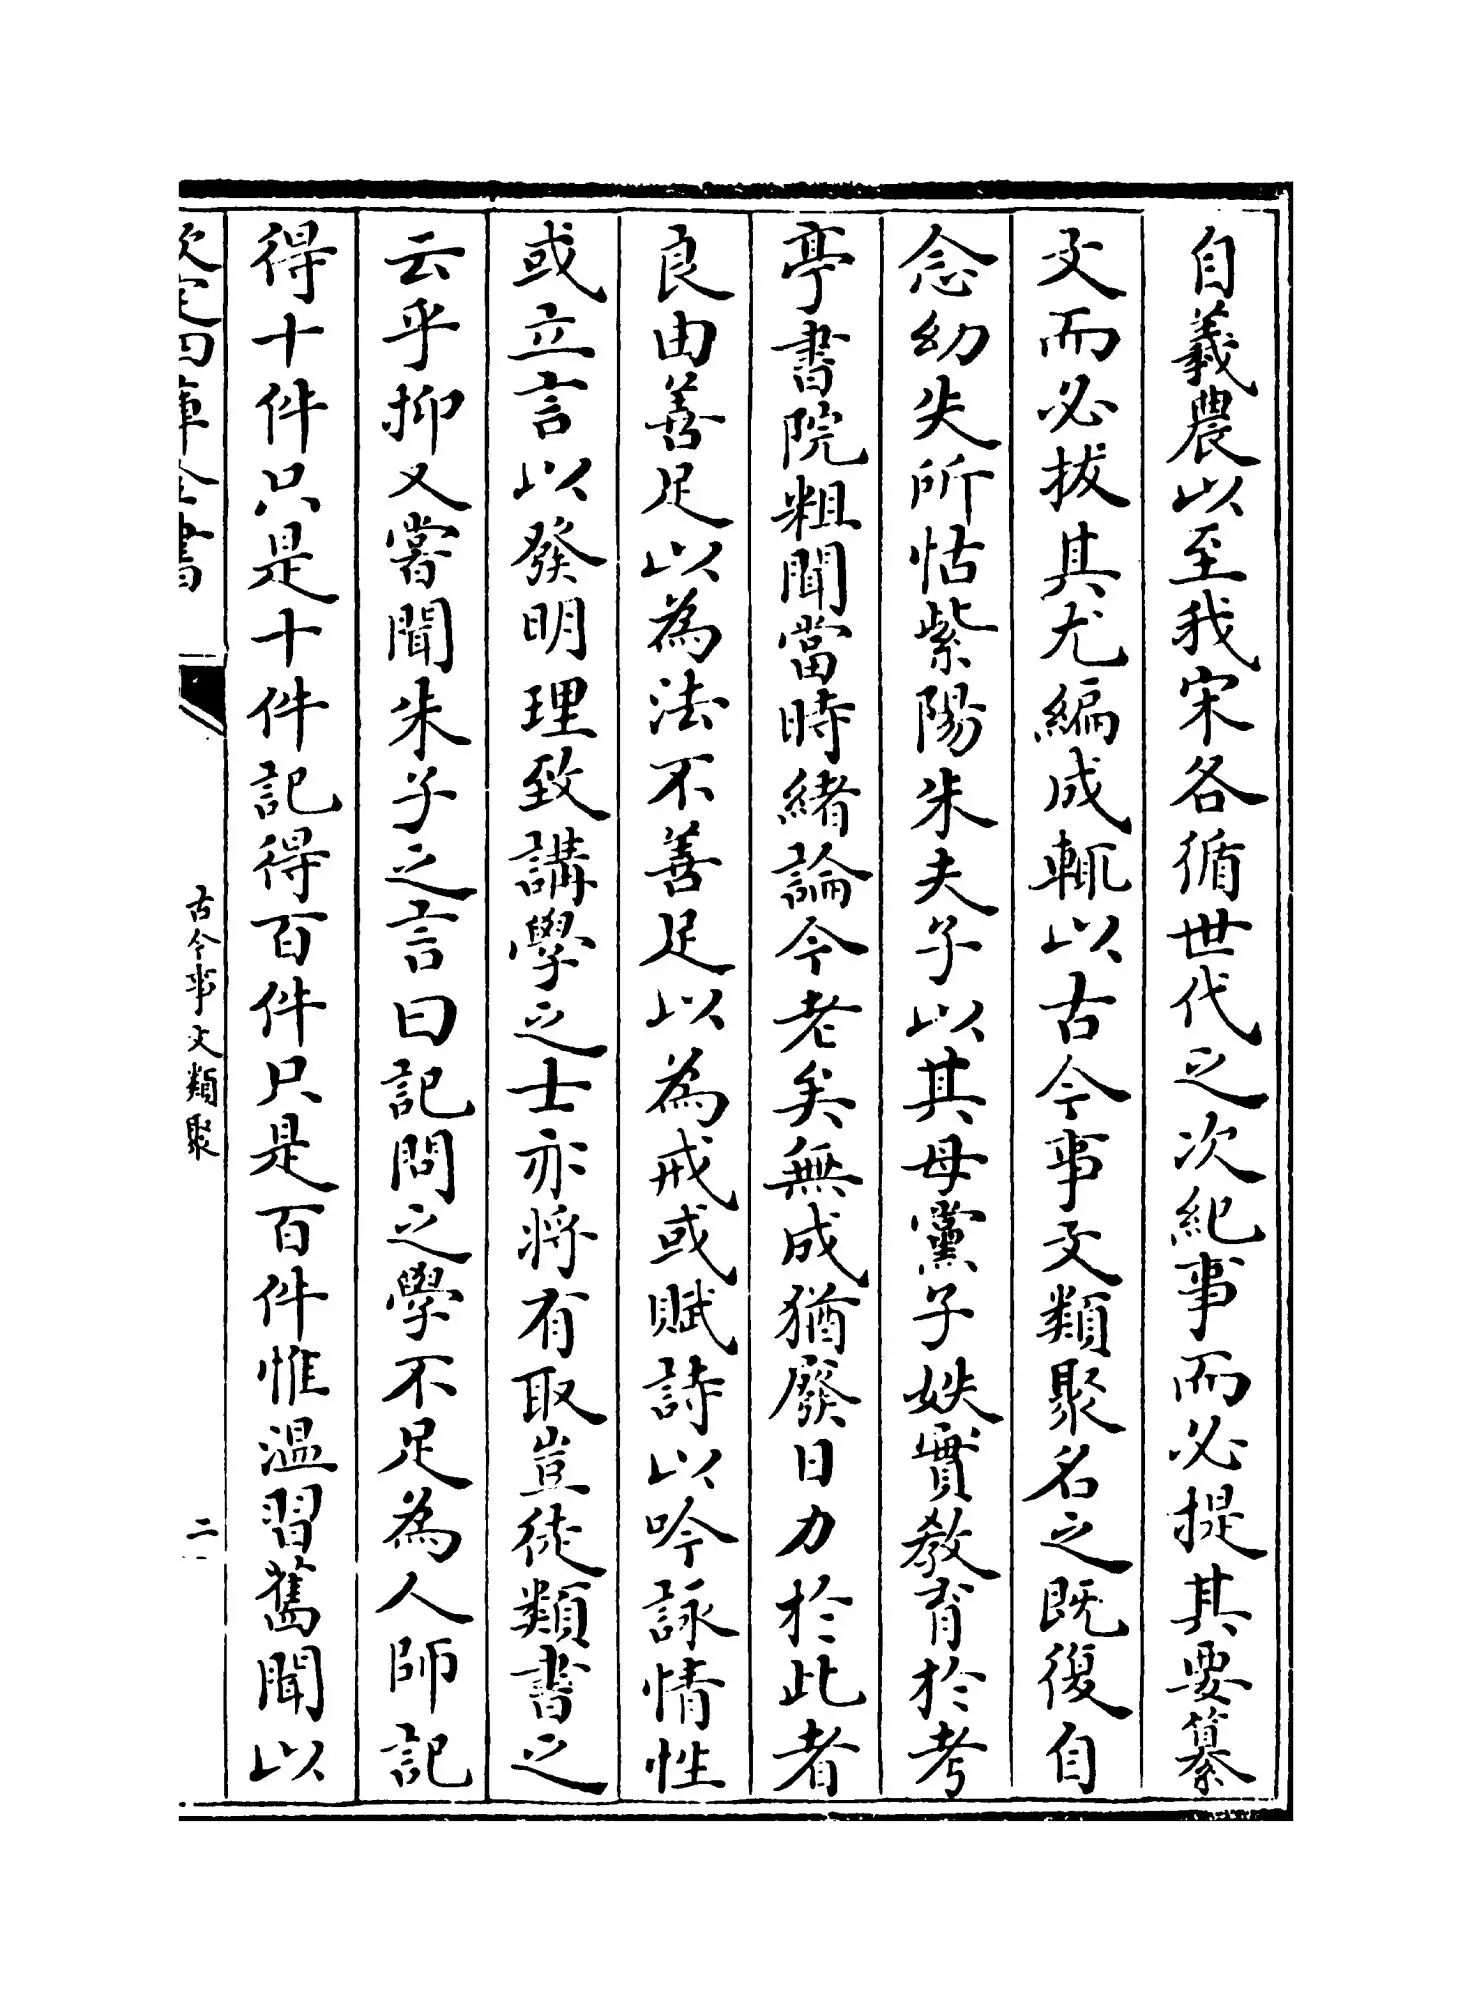 自羲農以至我宋各循世代之次紀事而必提其要纂
文而必拔其尤編成輒以古今事文類聚名之既復自
念幼失所怙紫陽朱夫子以其母黨子姪實教育於考
亭書院粗聞當時緒論今老矣無成猶廢日力於此者
良由善足以為法不善足以為戒或賦詩以吟詠情性
或立言以發明理致講學之士亦將有取豈徒類書之
云乎抑又嘗聞朱子之言曰記問之學不足為人師記
得十件只是十件記得百件只是百件惟溫習舊聞以
欽定四庫全書
古今事文類聚
二